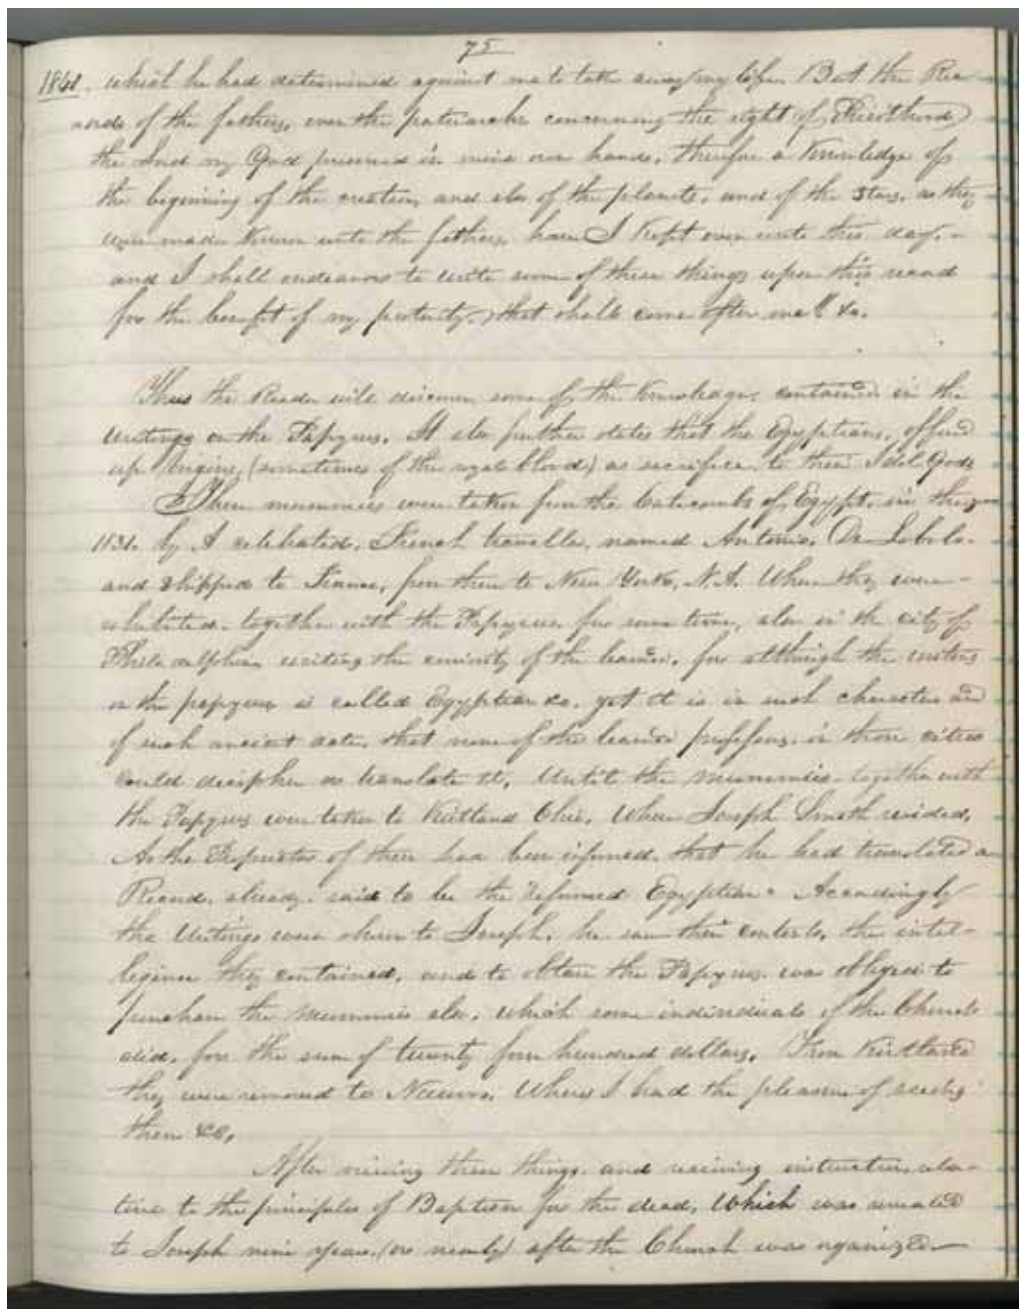 75
1841. which he had determined against me to take away my life. But the Rec-
ords of the fathers, even the patriarchs concerning the right of Priesthood
the Lord my God preserved in mine own hands, therefore a Knowledge of
the beginning of the creation, and also of the planets, and of the Stars, as they
were made Known unto the fathers have I Kept even unto this day,-
and I shall endeavor to write some of these things upon this record
for the benefit of my posterity, that shall come after me" &c.
Thus the Reader will discover some of the Knowledge, contained in the
writings on the Papyrus. It also further states that the Egyptians, offered
up Virgins, (sometimes of the royal blood) as sacrifice, to their Idol Gods
These mummies were taken from the Catacombs of Egypt, in the
1831. by A celebrated, French traveller, named Antonio, De Lobolo-
and Shipped to France, from thence to New York, N.A. Where they were-
exhibited- together with the Papyrus for some time, also in the city of
Philadelphia exciting the curiosity of the learned, for although the writing
on the papyrus is called Egyptian &c. yet it is in such character and
of such ancient date, that none of the learned professors, in those cities
could decipher or translate it, Until the mummies- together with
the Papyrus were taken to Kirtland Ohio, Where Joseph Smith resided,
As the Proprietor of them had been informed, that he had translated a
Record, already, said to be the reformed Egyptian- Accordingly
the Writings were shown to Joseph, he saw their contents, the intel-
ligence they contained, and to obtain the Papyrus, was obliged to
purchase the mummies also, which some individuals of the Church
did, for the sum of twenty four hundred dollars, From Kirtland
they were removed to Nauvoo, Where I had the pleasure of seeing
them &c,
After viewing these things, and receiving instruction, rela-
tive to the principles of Baptism for the dead, Which was revealed
to Joseph nine years, (or nearly) after the Church was organized-